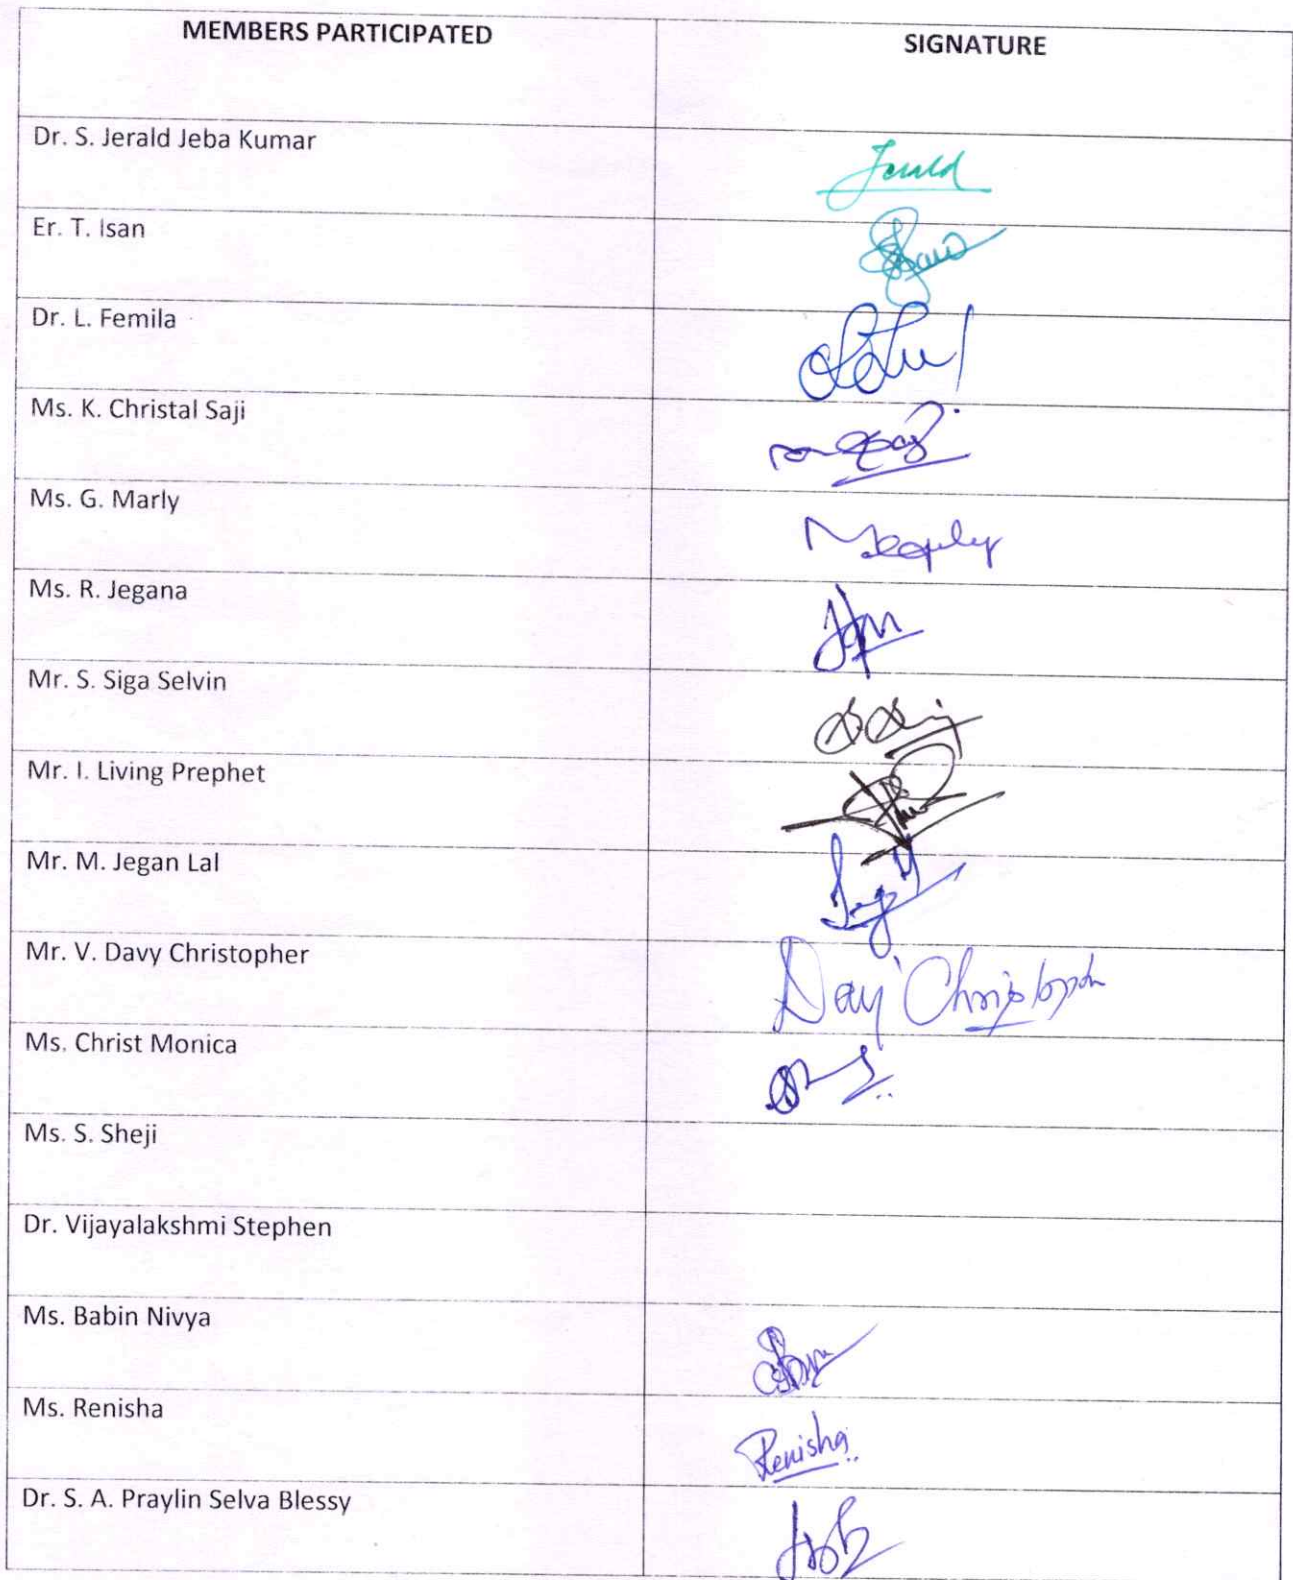 MEMBERS PARTICIPATED SIGNATURE
Dr. S. Jerald Jeba Kumar Jerald
Er. T. Isan
Dr. L. Femila
Ms. K. Christal Saji
Ms. G. Marly
Ms. R. Jegana
Mr. S. Siga Selvin
Mr. I. Living Prephet
Mr. M. Jegan Lal
Mr. V. Davy Christopher
Ms. Christ Monica
Ms. S. Sheji
Dr. Vijayalakshmi Stephen
Ms. Babin Nivya
Ms. Renisha Renisha
Dr. S. A. Praylin Selva Blessy